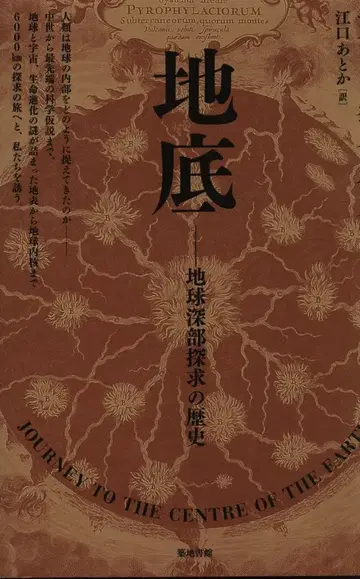 PYROPHYLACTORUM
Subterraneorum, quorum montes
江口あとか[訳]
地底
地球深部探求の歴史
人類は地球の内部をどのように捉えてきたのか——
中世から最先端の科学仮説まで、
地球と宇宙、生命進化の謎が詰まった地表から地球内核まで
6000kmの探求の旅へと、私たちを誘う。
JOURNEY TO THE CENTRE OF THE EARTH
築地書館